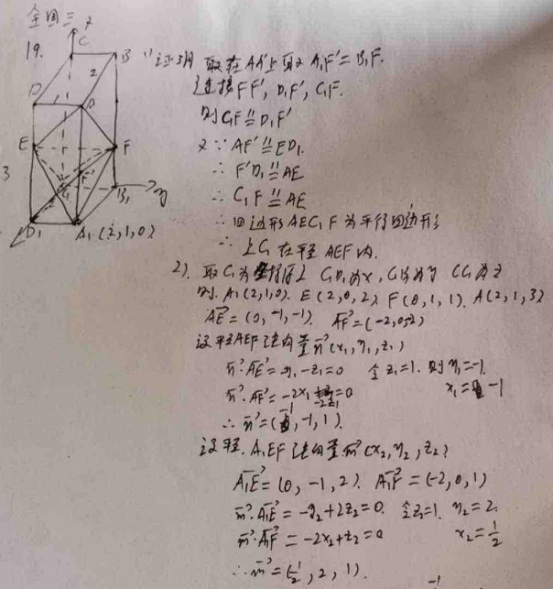 全国三
19.
C
B
2
D
A
E
F
F'
3
C₁
B₁
y
D₁ A₁(2,1,0)
1) 证明 取在AA₁上取A₁F'=B₁F.
连接FF', D₁F', C₁F.
则C₁F∥=D₁F'
又∵ AF'∥=ED₁
∴ F'D₁∥=AE
∴ C₁F∥=AE
∴ 四边形AEC₁F为平行四边形
∴ 点C₁在平面AEF内.
2). 取C₁为坐标原点 C₁D₁为x, C₁B₁为y CC₁为z
则. A₁(2,1,0). E(2,0,2) F(0,1,1). A(2,1,3)
AE=(0,-1,-1). AF=(-2,0,-2)
设平AEF法向量n(x₁,y₁,z₁)
n·AE=-y₁-z₁=0 令z₁=1. 则y₁=-1.
n·AF=-2x₁-2z₁=0 x₁=-1
∴ n=(-1,-1,1).
设平. A₁EF法向量m(x₂,y₂,z₂)
A₁E=(0,-1,2). A₁F=(-2,0,1)
m·A₁E=-y₂+2z₂=0. 令z₂=1. y₂=2.
m·A₁F=-2x₂+z₂=0 x₂=1/2
∴ m=(1/2,2,1).